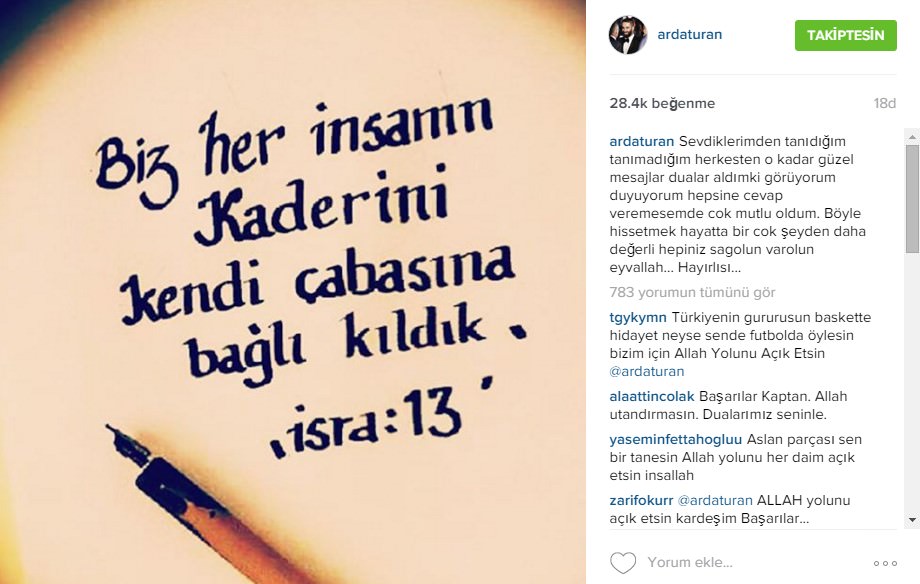 Biz her insanın
Kaderini
kendi çabasına
bağlı kıldık.
isra:13
ardaturan
TAKİPTESİN
28.4k beğenme
18d
ardaturan Sevdiklerimden tanıdığım
tanımadığım herkesten o kadar güzel
mesajlar dualar aldımki görüyorum
duyuyorum hepsine cevap
veremesemde cok mutlu oldum. Böyle
hissetmek hayatta bir cok şeyden daha
değerli hepiniz sagolun varolun
eyvallah... Hayırlısı...
783 yorumun tümünü gör
tgykymn Türkiyenin gururusun baskette
hidayet neyse sende futbolda öylesin
bizim için Allah Yolunu Açık Etsin
@ardaturan
alaattincolak Başarılar Kaptan. Allah
utandırmasın. Dualarımız seninle.
yaseminfettahogluu Aslan parçası sen
bir tanesin Allah yolunu her daim açık
etsin insallah
zarifokurr @ardaturan ALLAH yolunu
açık etsin kardeşim Başarılar...
Yorum ekle...